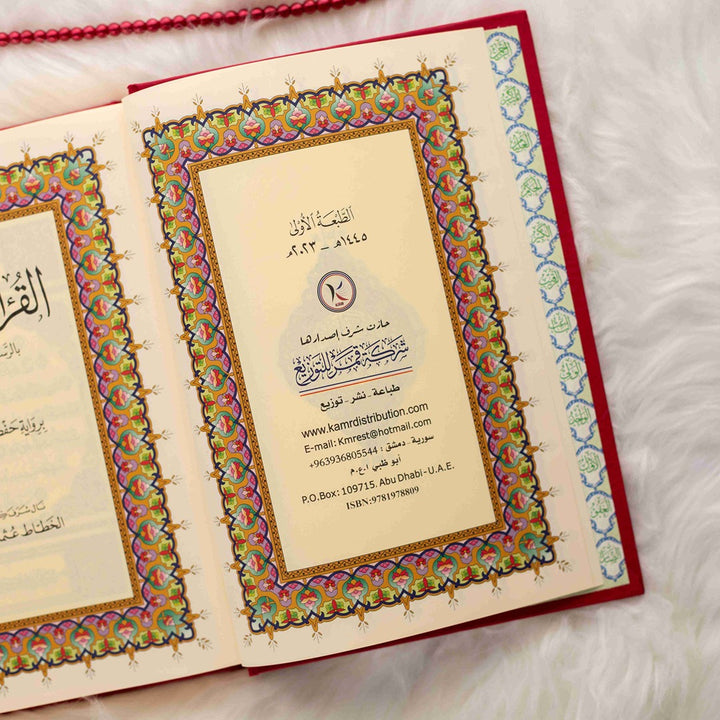 الطَّبْعَةُ الْأُولَى
١٤٤٥هـ - ٢٠٢٣م
حازت شرف إصدارها
شركة قمر للتوزيع
طباعة - نشر - توزيع
www.kamrdistribution.com
E-mail: Kmrest@hotmail.com
سورية - دمشق : 963936805544+
أبو ظبي ا.ع.م
P.O.Box: 109715. Abu Dhabi - U.A.E.
ISBN:9781978809
القُرْ
بالرس
برواية حفص
نال شرف
الخطاط عثم